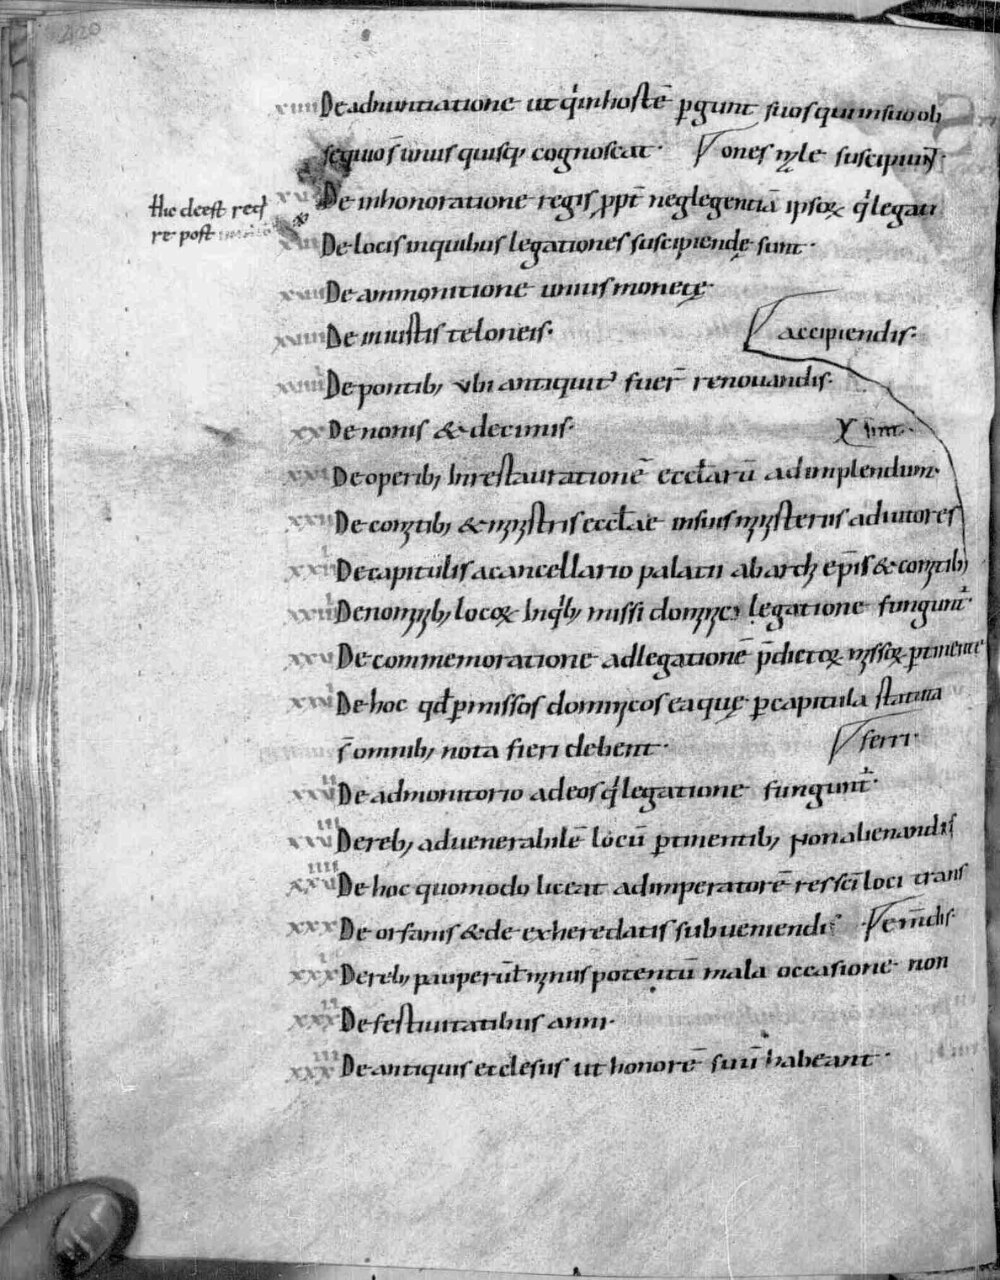 420
xiiii De adnuntiatione ut q̓ in hostē ꝑgunt suos qui in suo ob
sequio s̄ unus quisq; cognoscat · ones ꝳle suscipiunt̓ ·
xv De inhonoratione regis ꝓpt̄ neglegentiā ipsoꝝ q̓ legati
Hic deest req̓
re post
xvi De locis in quibus legationes suscipiendę sunt ·
xvii De ammonitione unius monetę ·
xviii De iniustis teloneis · accipiendis ·
xviiii De pontib; ubi antiquit᾽ fuer̄ renouandis ·
xx De nonis & decimis · sint ·
xxi De operib; in restaurationē eccl̄arū ad implendum ·
xxii De comitib; & ministris eccl̄ae in suis ministeriis adiutores
xxiii De capitulis a cancellario palatii ab archi ep̄is & comitib;
xxiiii De nominib; locoꝝ in q̓b; missi dominici legatione fungunt̓ ·
xxv De commemoratione ad legationē p̄dictoꝝ missoꝝ ꝑtinente
xxvi De hoc qd̄ ꝑ missos dominicos ea quę ꝑ capitula statuta
s̄ omnib; nota fieri debent · ferri ·
xxvii De admonitorio ad eos q̓ legatione fungunt̓ ·
xxviii De reb; ad uenerabilē locū ꝑtinentib; non alienandis
xxviiii De hoc quomodo liceat ad imperatorē res sc̄i loci trans
xxx De orfanis & de exheredatis subueniendis emdis ·
xxxi De reb; pauperū t̄ minus potentū mala occasione non
xxxii De festiuitatibus anni ·
xxxiii De antiquis ecclesiis ut honorē suū habeant ·